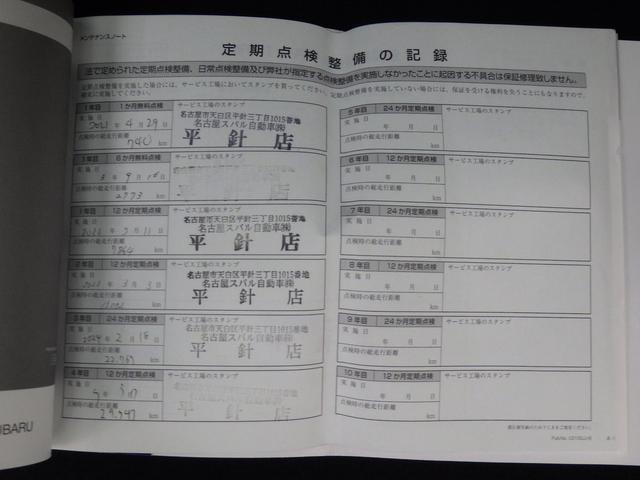 メンテナンスノート
定期点検整備の記録
法で定められた定期点検整備、日常点検整備及び弊社が指定する点検整備を実施しなかったことに起因する不具合は保証修理致しません。
定期点検整備を実施した場合には、サービス工場においてスタンプを貰ってください。定期点検整備を実施していない場合には、保証を受ける権利を失うことにもなりますので、
確実に実施してください。
1年目 1か月無料点検 サービス工場のスタンプ
実施日
2021年4月29日
点検時の総走行距離
740 km
名古屋市天白区平針三丁目1015番地
名古屋スバル自動車㈱
平針店
1年目 6か月無料点検 サービス工場のスタンプ
実施日
点検時の総走行距離
2773 km
1年目 12か月定期点検 サービス工場のスタンプ
実施日
点検時の総走行距離
km
名古屋市天白区平針三丁目1015番地
名古屋スバル自動車㈱
平針店
2年目 12か月定期点検 サービス工場のスタンプ
実施日
年3月3日
点検時の総走行距離
km
名古屋市天白区平針三丁目1015番地
名古屋スバル自動車㈱
平針店
3年目 24か月定期点検 サービス工場のスタンプ
実施日
2024年2月18日
点検時の総走行距離
22,767 km
名古屋市天白区平針三丁目1015番地
名古屋スバル自動車㈱
平針店
4年目 12か月定期点検 サービス工場のスタンプ
実施日
点検時の総走行距離
29,547 km
5年目 24か月定期点検 サービス工場のスタンプ
実施日
年 月 日
点検時の総走行距離
km
6年目 12か月定期点検 サービス工場のスタンプ
実施日
年 月 日
点検時の総走行距離
km
7年目 24か月定期点検 サービス工場のスタンプ
実施日
年 月 日
点検時の総走行距離
km
8年目 12か月定期点検 サービス工場のスタンプ
実施日
年 月 日
点検時の総走行距離
km
9年目 24か月定期点検 サービス工場のスタンプ
実施日
年 月 日
点検時の総走行距離
km
10年目 12か月定期点検 サービス工場のスタンプ
実施日
年 月 日
点検時の総走行距離
km
UBARU